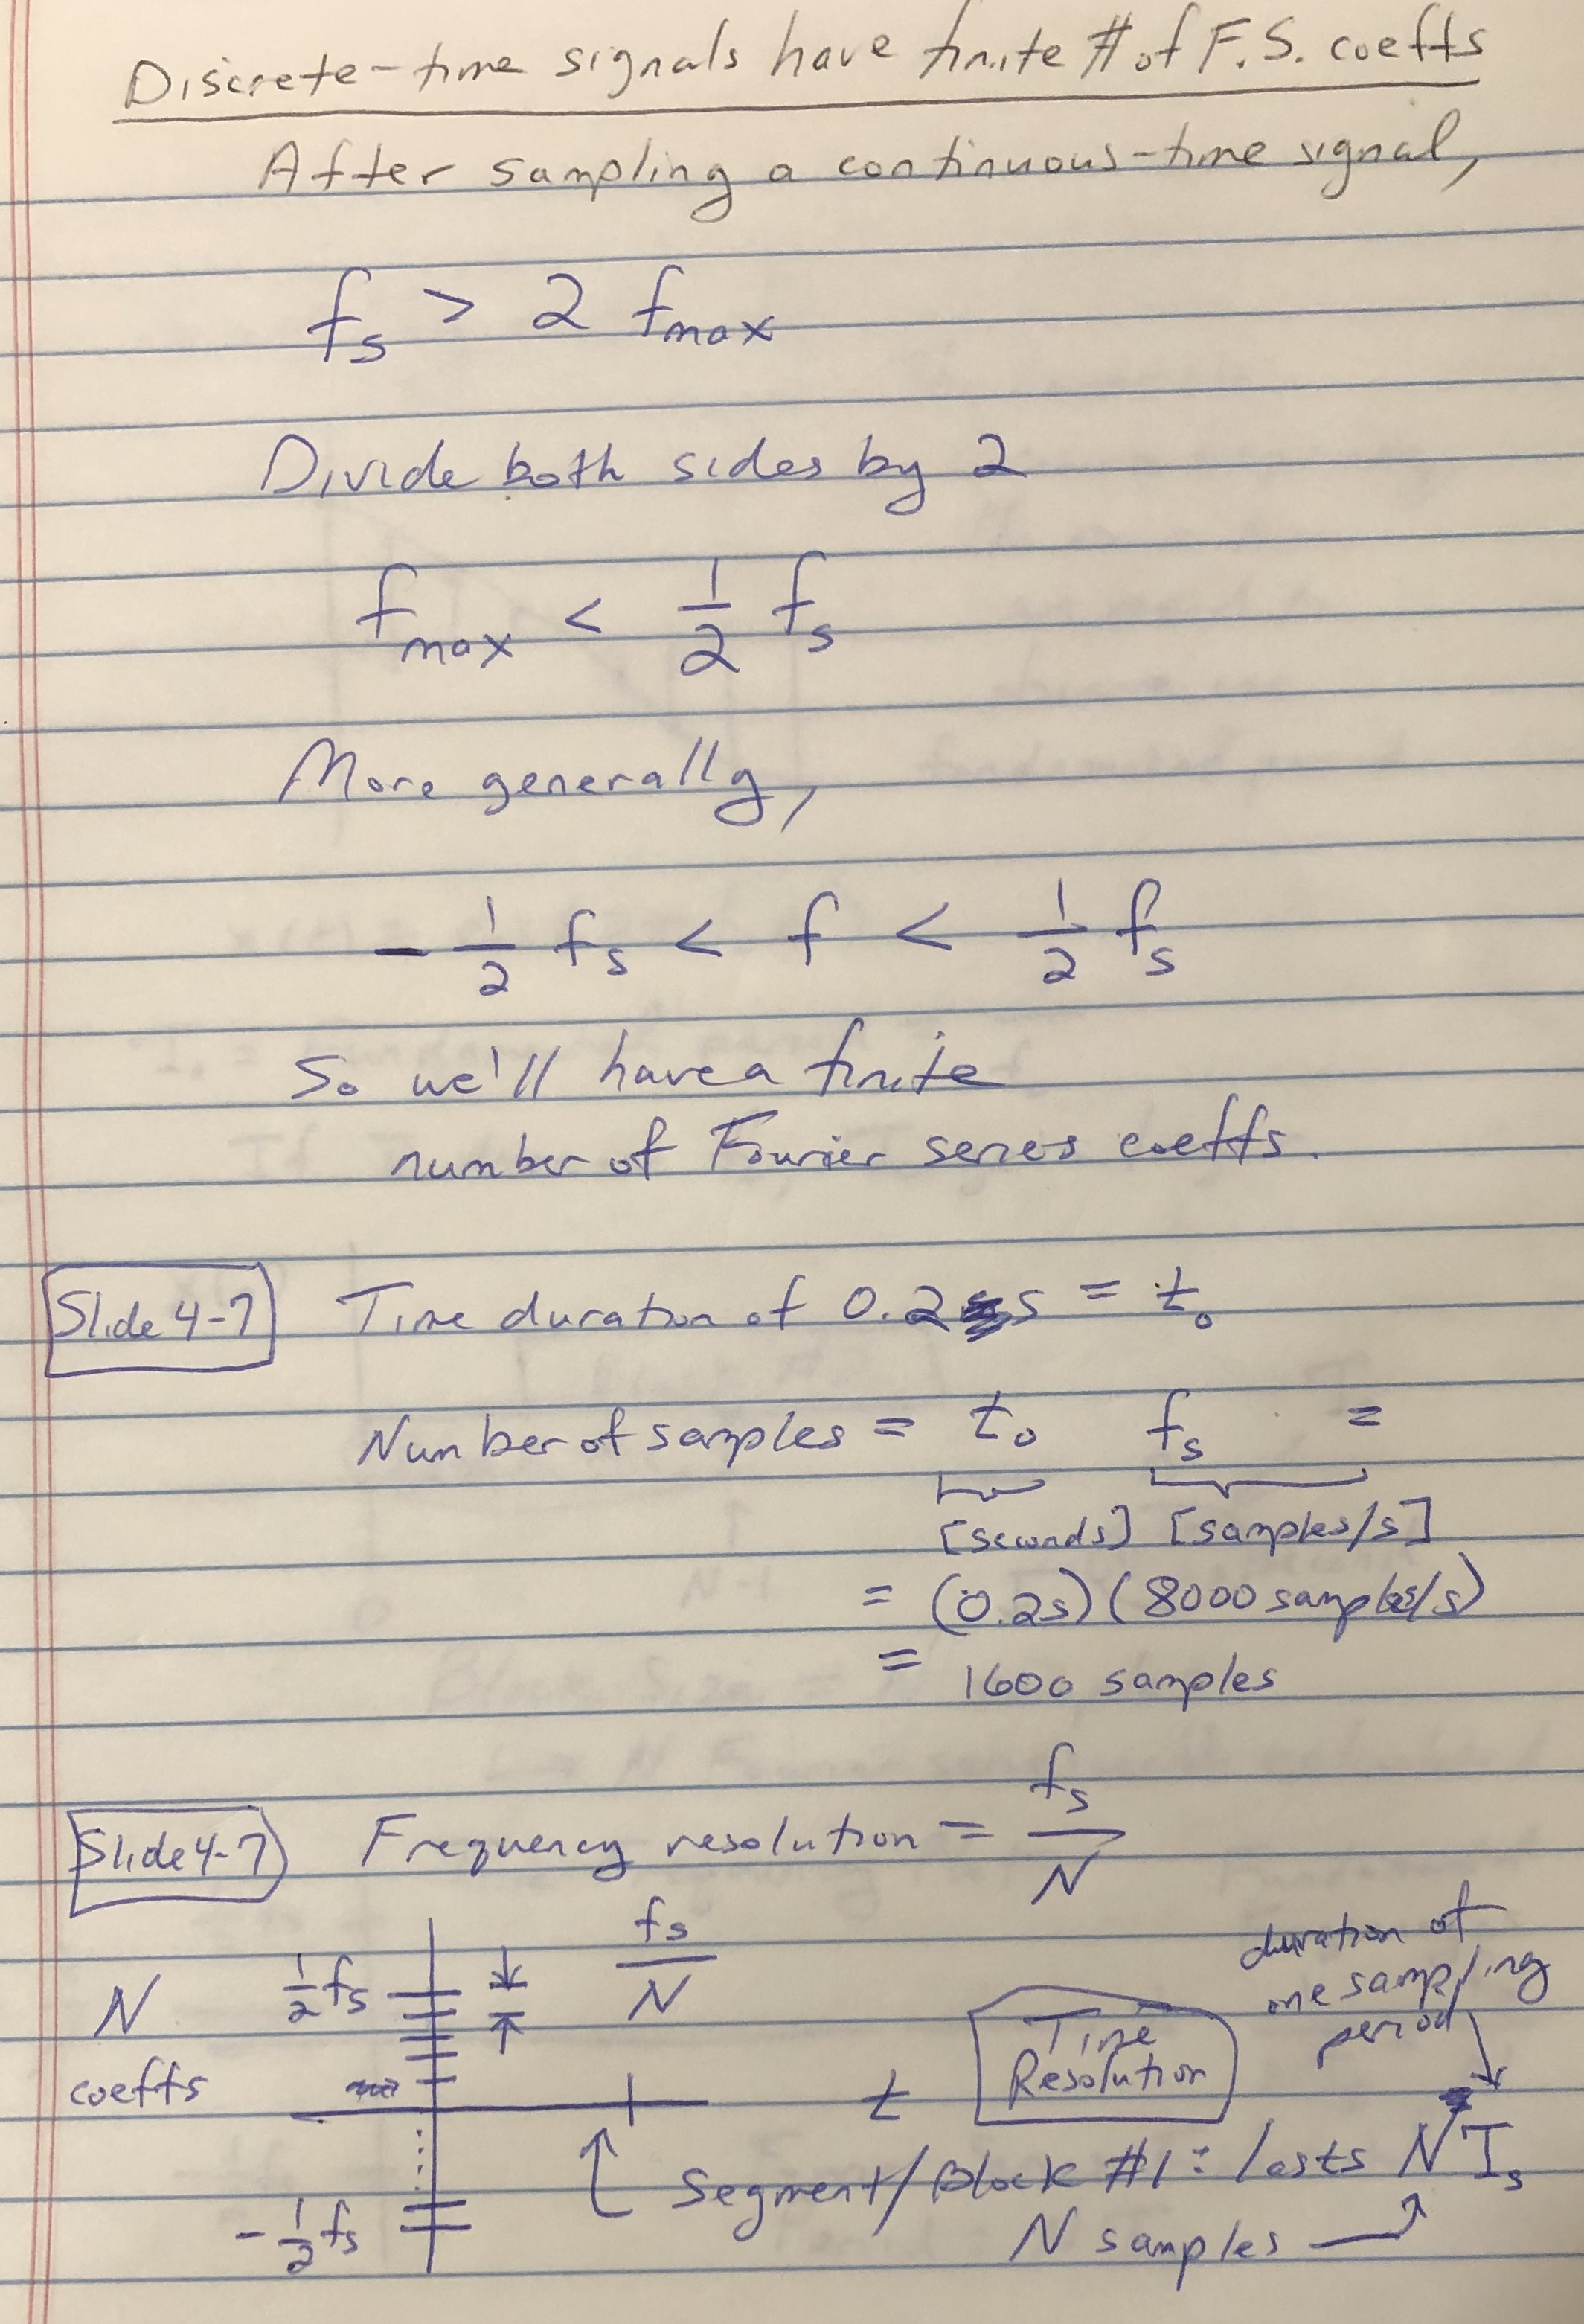 Discrete-time signals have finite # of F.S. coeffs
After sampling a continuous-time signal,
fs > 2 fmax
Divide both sides by 2
fmax < 1/2 fs
More generally,
- 1/2 fs < f < 1/2 fs
So we'll have a finite
number of Fourier series coeffs.
Slide 4-7 Time duration of 0.2 s = t0
Number of samples = t0 fs =
[seconds] [samples/s]
= (0.2s) (8000 samples/s)
= 1600 samples
Slide 4-7 Frequency resolution = fs/N
N coeffs
1/2 fs
fs/N
- 1/2 fs
t
Time
Resolution
duration of
one sampling
period
Segment/Block #1: lasts N Ts
N samples